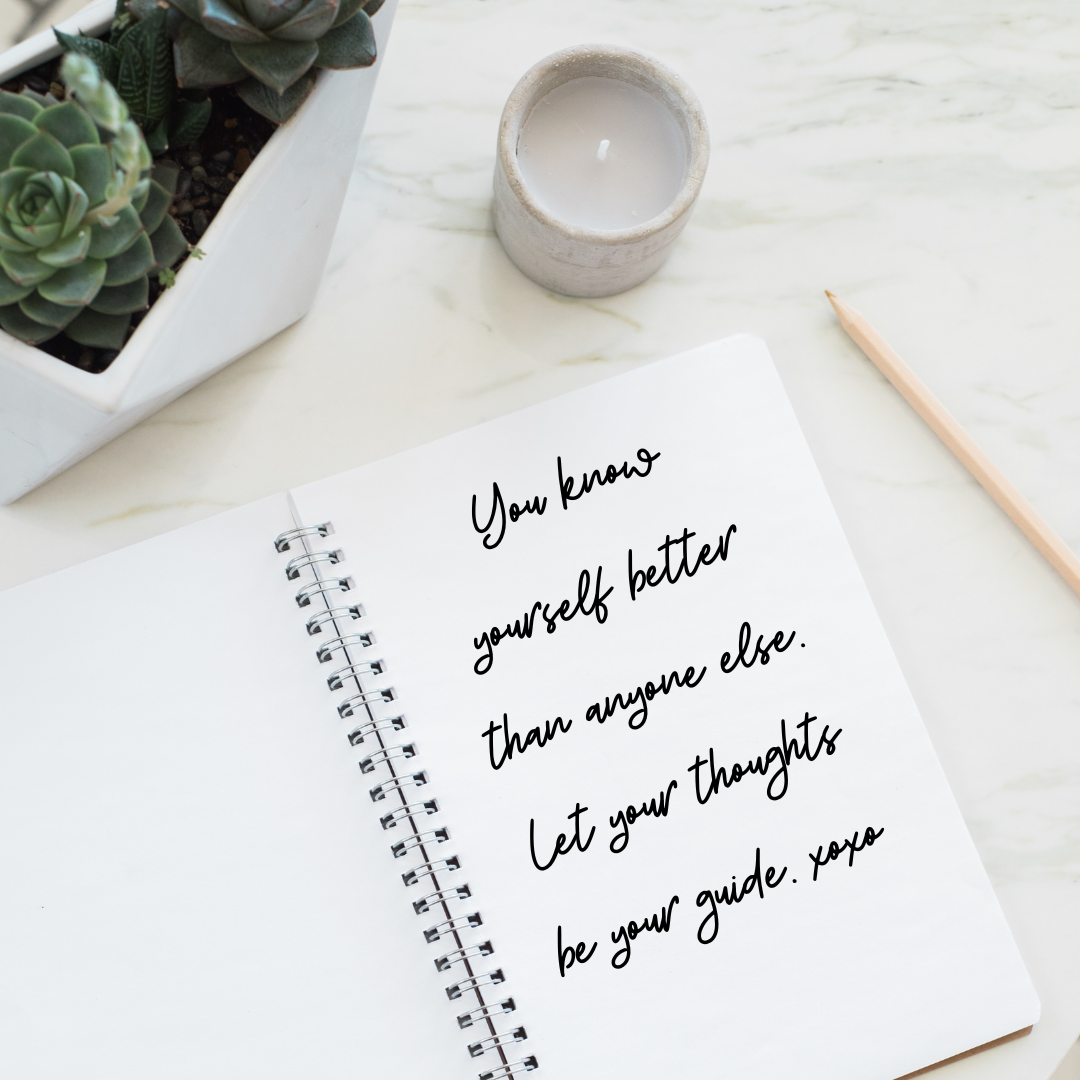 You know
yourself better
than anyone else.
Let your thoughts
be your guide. xoxo